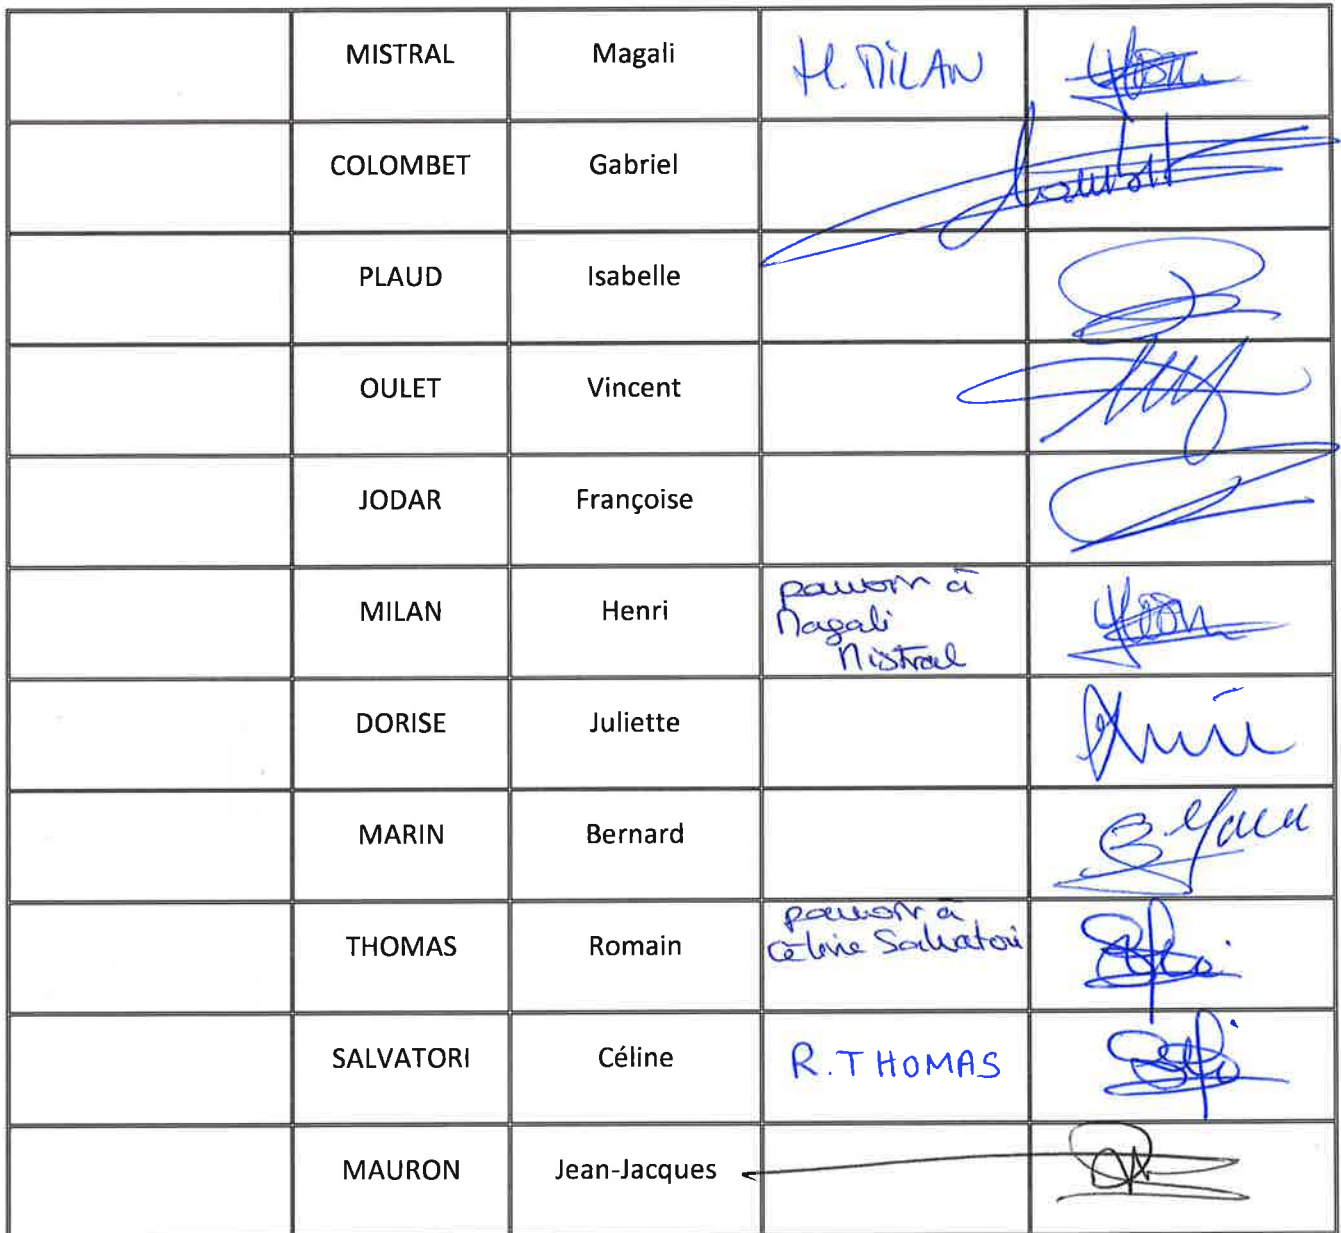 MISTRAL Magali H. MILAN
COLOMBET Gabriel
PLAUD Isabelle
OULET Vincent
JODAR Françoise
MILAN Henri pouvoir à
Magali
Mistral
DORISE Juliette
MARIN Bernard
THOMAS Romain pouvoir à
Céline Salvatori
SALVATORI Céline R. THOMAS
MAURON Jean-Jacques